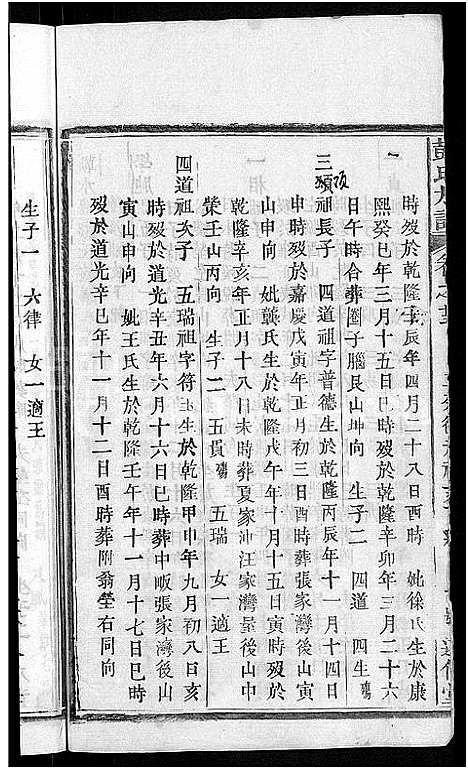 時歿於乾隆壬辰年四月二十八日酉時 妣徐氏生於康
熙癸巳年三月十五日巳時歿於乾隆辛卯年三月二十六
日午時合葬圈子腦艮山坤向 生子二 四道 四生殤
三項祖長子 四道祖字普德生於乾隆丙辰年十一月十四日
申時歿於嘉慶戊寅年正月初三日酉時葬張家灣後山寅
山申向 妣龔氏生於乾隆戊午年十月十五日寅時歿於
乾隆辛亥年正月十八日未時葬夏家冲汪家灣屋後山中
榮壬山丙向 生子二 五貫殤 五瑞 女一適王
四道祖次子 五瑞祖字符玉生於乾隆甲申年九月初八日亥
時歿於道光辛丑年六月十六日巳時葬中畈張家灣後山
寅山申向 妣王氏生於乾隆壬午年十一月十七日巳時
歿於道光辛巳年十一月十二日酉時葬附翁塋右同向
生子一 六律 女一適王